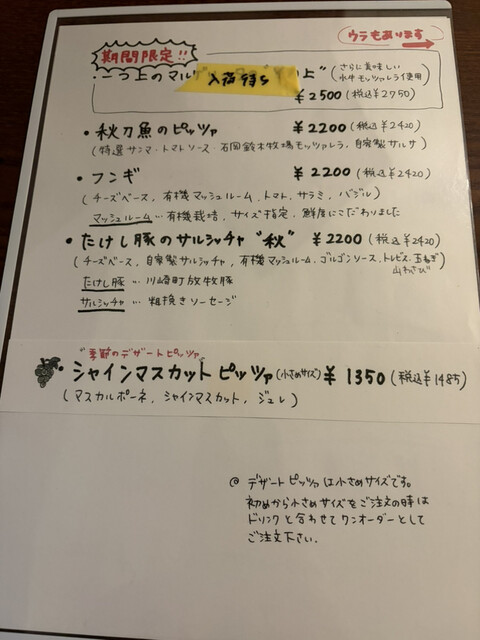 ウラもあります
期間限定!!
・一つ上のマル
入荷待ち
上"
(さらに美味しい
水牛モッツァレラ使用)
¥2500(税込¥2750)
・秋刀魚のピッツァ ¥2200(税込¥2420)
(特選サンマ・トマトソース・石岡鈴木牧場モッツァレラ、自家製サルサ)
・フンギ ¥2200(税込¥2420)
(チーズベース、有機マッシュルーム、トマト、サラミ、バジル)
マッシュルーム…有機栽培、サイズ指定、鮮度にこだわりました
・たけし豚のサルシッチャ"秋" ¥2200(税込¥2420)
(チーズベース、自家製サルシッチャ、有機マッシュルーム、ゴルゴンソース、トレビス、玉ねぎ
山わさび)
たけし豚…川崎町放牧豚
サルシッチャ…粗挽きソーセージ
"季節のデザートピッツァ"
シャインマスカットピッツァ(小さめサイズ)¥1350(税込¥1485)
(マスカルポーネ、シャインマスカット、ジュレ)
@ デザートピッツァは小さめサイズです。
初めから小さめサイズをご注文の時は
ドリンクと合わせてワンオーダーとして
ご注文下さい.